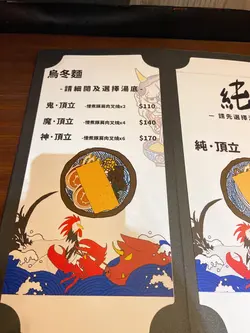 烏冬麵
-請細閱及選擇湯底-
鬼·頂立 -慢煮豚肩肉叉燒x2 $110
魔·頂立 -慢煮豚肩肉叉燒x4 $140
神·頂立 -慢煮豚肩肉叉燒x6 $170
純
一 請先選擇
純·頂立